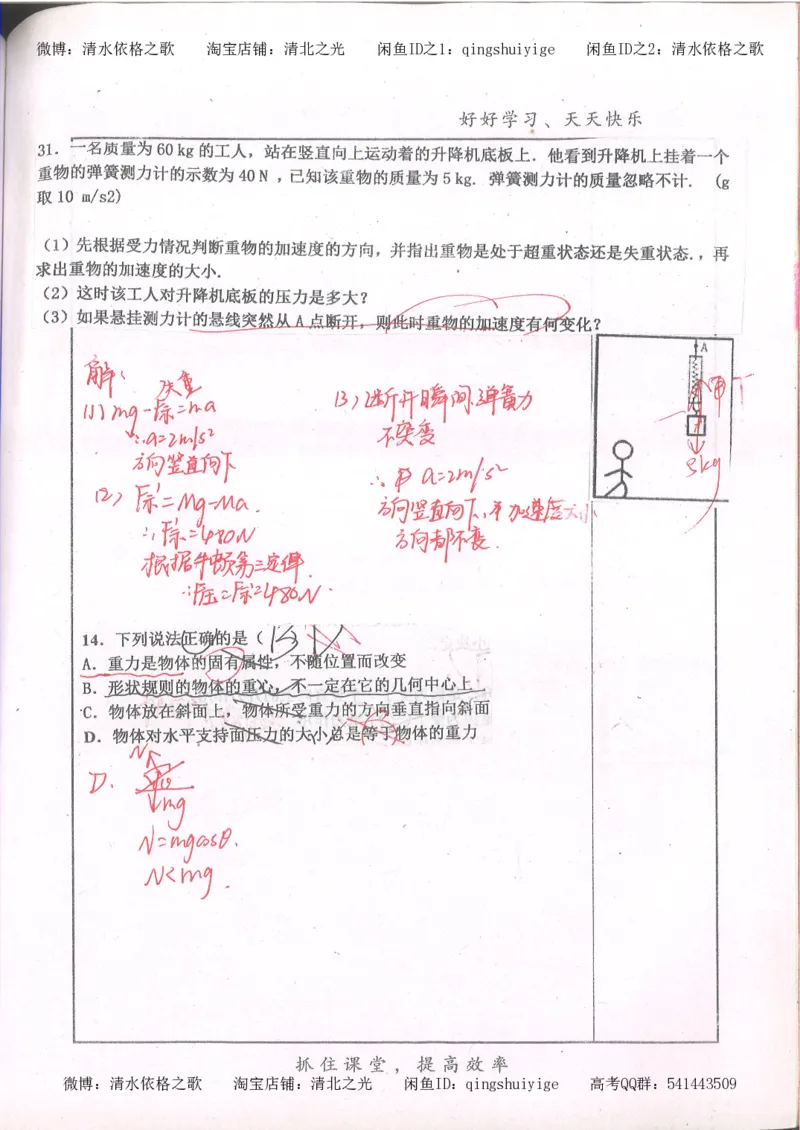 微博：清水依格之歌 淘宝店铺：清北之光 闲鱼ID之1：qingshuiyige 闲鱼ID之2：清水依格之歌
好好学习、天天快乐
31．一名质量为 60 kg 的工人，站在竖直向上运动着的升降机底板上．他看到升降机上挂着一个
重物的弹簧测力计的示数为 40 N ，已知该重物的质量为 5 kg．弹簧测力计的质量忽略不计． (g
取 10 m/s2)
（1）先根据受力情况判断重物的加速度的方向，并指出重物是处于超重状态还是失重状态．，再
求出重物的加速度的大小．
（2）这时该工人对升降机底板的压力是多大？
（3）如果悬挂测力计的悬线突然从 A 点断开，则此时重物的加速度有何变化？
A
5kg
解：
失重
(1) mg-F示=ma
∴a=2m/s²
方向竖直向下
(2) F示'=Mg-Ma.
∴F示'=480N
根据牛顿第三定律
∴F压=F示'=480N.
(3) 断开瞬间.弹簧力
不突变
∴ a=2m/s²
方向竖直向下, 加速度大小
方向都不变.
14．下列说法正确的是（ B
A．重力是物体的固有属性，不随位置而改变
B．形状规则的物体的重心，不一定在它的几何中心上
C．物体放在斜面上，物体所受重力的方向垂直指向斜面
D．物体对水平支持面压力的大小总是等于物体的重力
N
D.
mg
N=mgcosθ.
N<mg.
抓住课堂，提高效率
微博：清水依格之歌 淘宝店铺：清北之光 闲鱼ID：qingshuiyige 高考QQ群：541443509